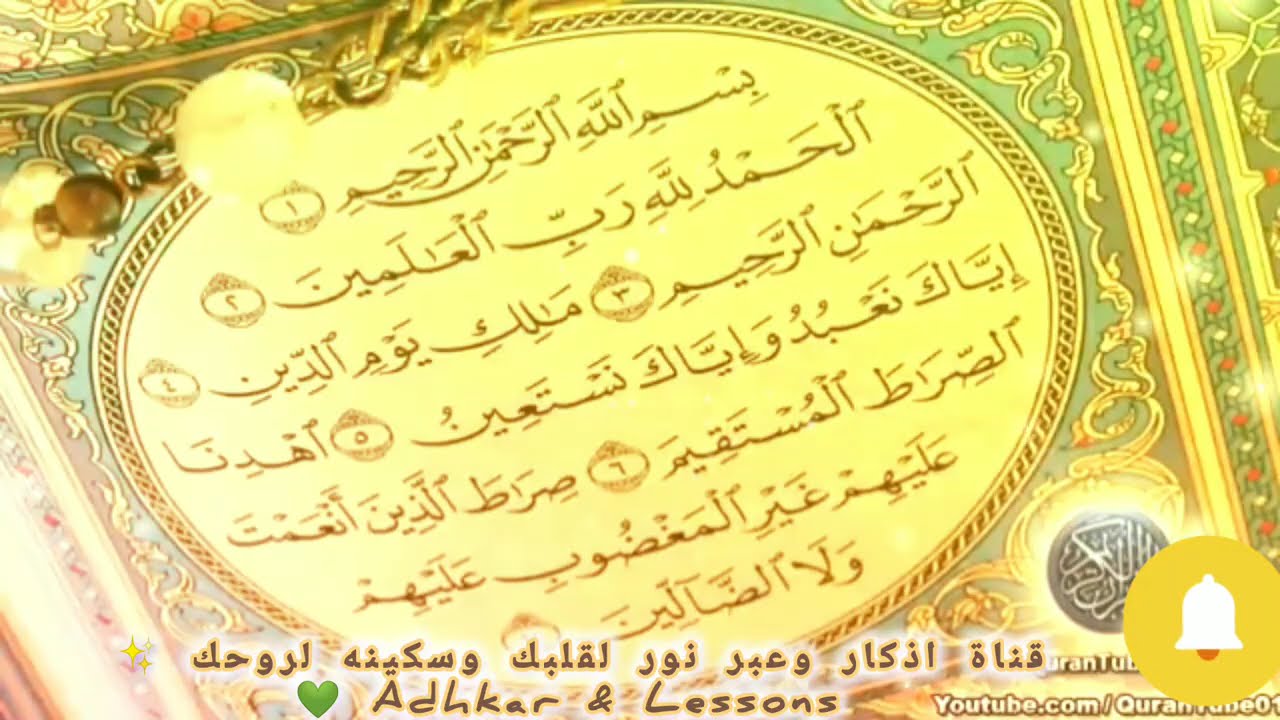 بِسْمِ ٱللَّهِ ٱلرَّحْمَٰنِ ٱلرَّحِيمِ ١
ٱلْحَمْدُ لِلَّهِ رَبِّ ٱلْعَٰلَمِينَ ٢
ٱلرَّحْمَٰنِ ٱلرَّحِيمِ ٣ مَٰلِكِ يَوْمِ ٱلدِّينِ ٤
إِيَّاكَ نَعْبُدُ وَإِيَّاكَ نَسْتَعِينُ ٥ ٱهْدِنَا
ٱلصِّرَٰطَ ٱلْمُسْتَقِيمَ ٦ صِرَٰطَ ٱلَّذِينَ أَنْعَمْتَ
عَلَيْهِمْ غَيْرِ ٱلْمَغْضُوبِ عَلَيْهِمْ
وَلَا ٱلضَّآلِّينَ
قناة اذكار وعبر نور لقلبك وسكينه لروحك
Adhkar & Lessons
Youtube.com / QuranTube01